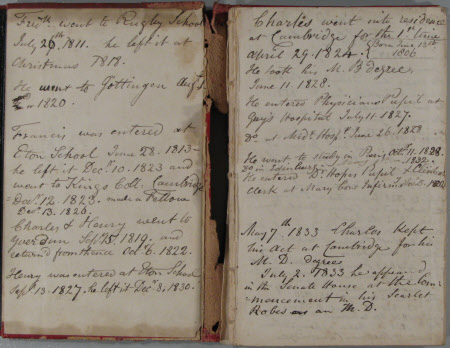 Fredk. went to Rugby School
July 20th 1811. he left it at
Christmas 1818.
He went to Gottingen Augt
1820.
Francis was entered at
Eton School June 28. 1813 -
he left it Decr. 10. 1823 and
went to Kings Coll. Cambridge
Decr. 12. 1823. made a Fellow
Decr. 13. 1826.
Charles & Henry went to
Sept. 25. 1819. and
returned from thence Octr. 6. 1822.
Henry was entered at Eton School
Sepr. 13. 1827. he left it Decr. 8. 1830.
Charles went into residence
at Cambridge for the 1st time
April 29. 1824. (Born June 13th
1806
He took his M.B degree
June 11 1828.
He entered Physicians Pupil at
Guy's Hospital July 11. 1827.
Do. at Medl. Hospl. June 26. 1828
He went to study in Paris Octr. 11. 1828.
Do in Edinburgh 1832.
He entered Dr. Hopes Pupil & Clinical
clerk at Mary bone Infirmy. 1832
May 7th 1833 Charles Kept
his Act at Cambridge for his
M. D. degree
July 2. 1833 he appeared
in the Senate House at the Com-
mencement in his Scarlet
Robes as an M. D.